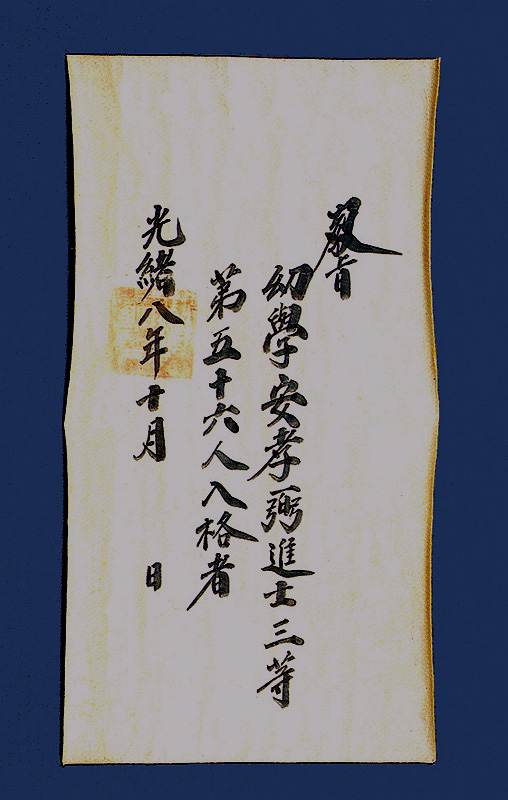 敎旨
幼學安孝弼進士三等
第五十六人入格者
光緖八年十月 日